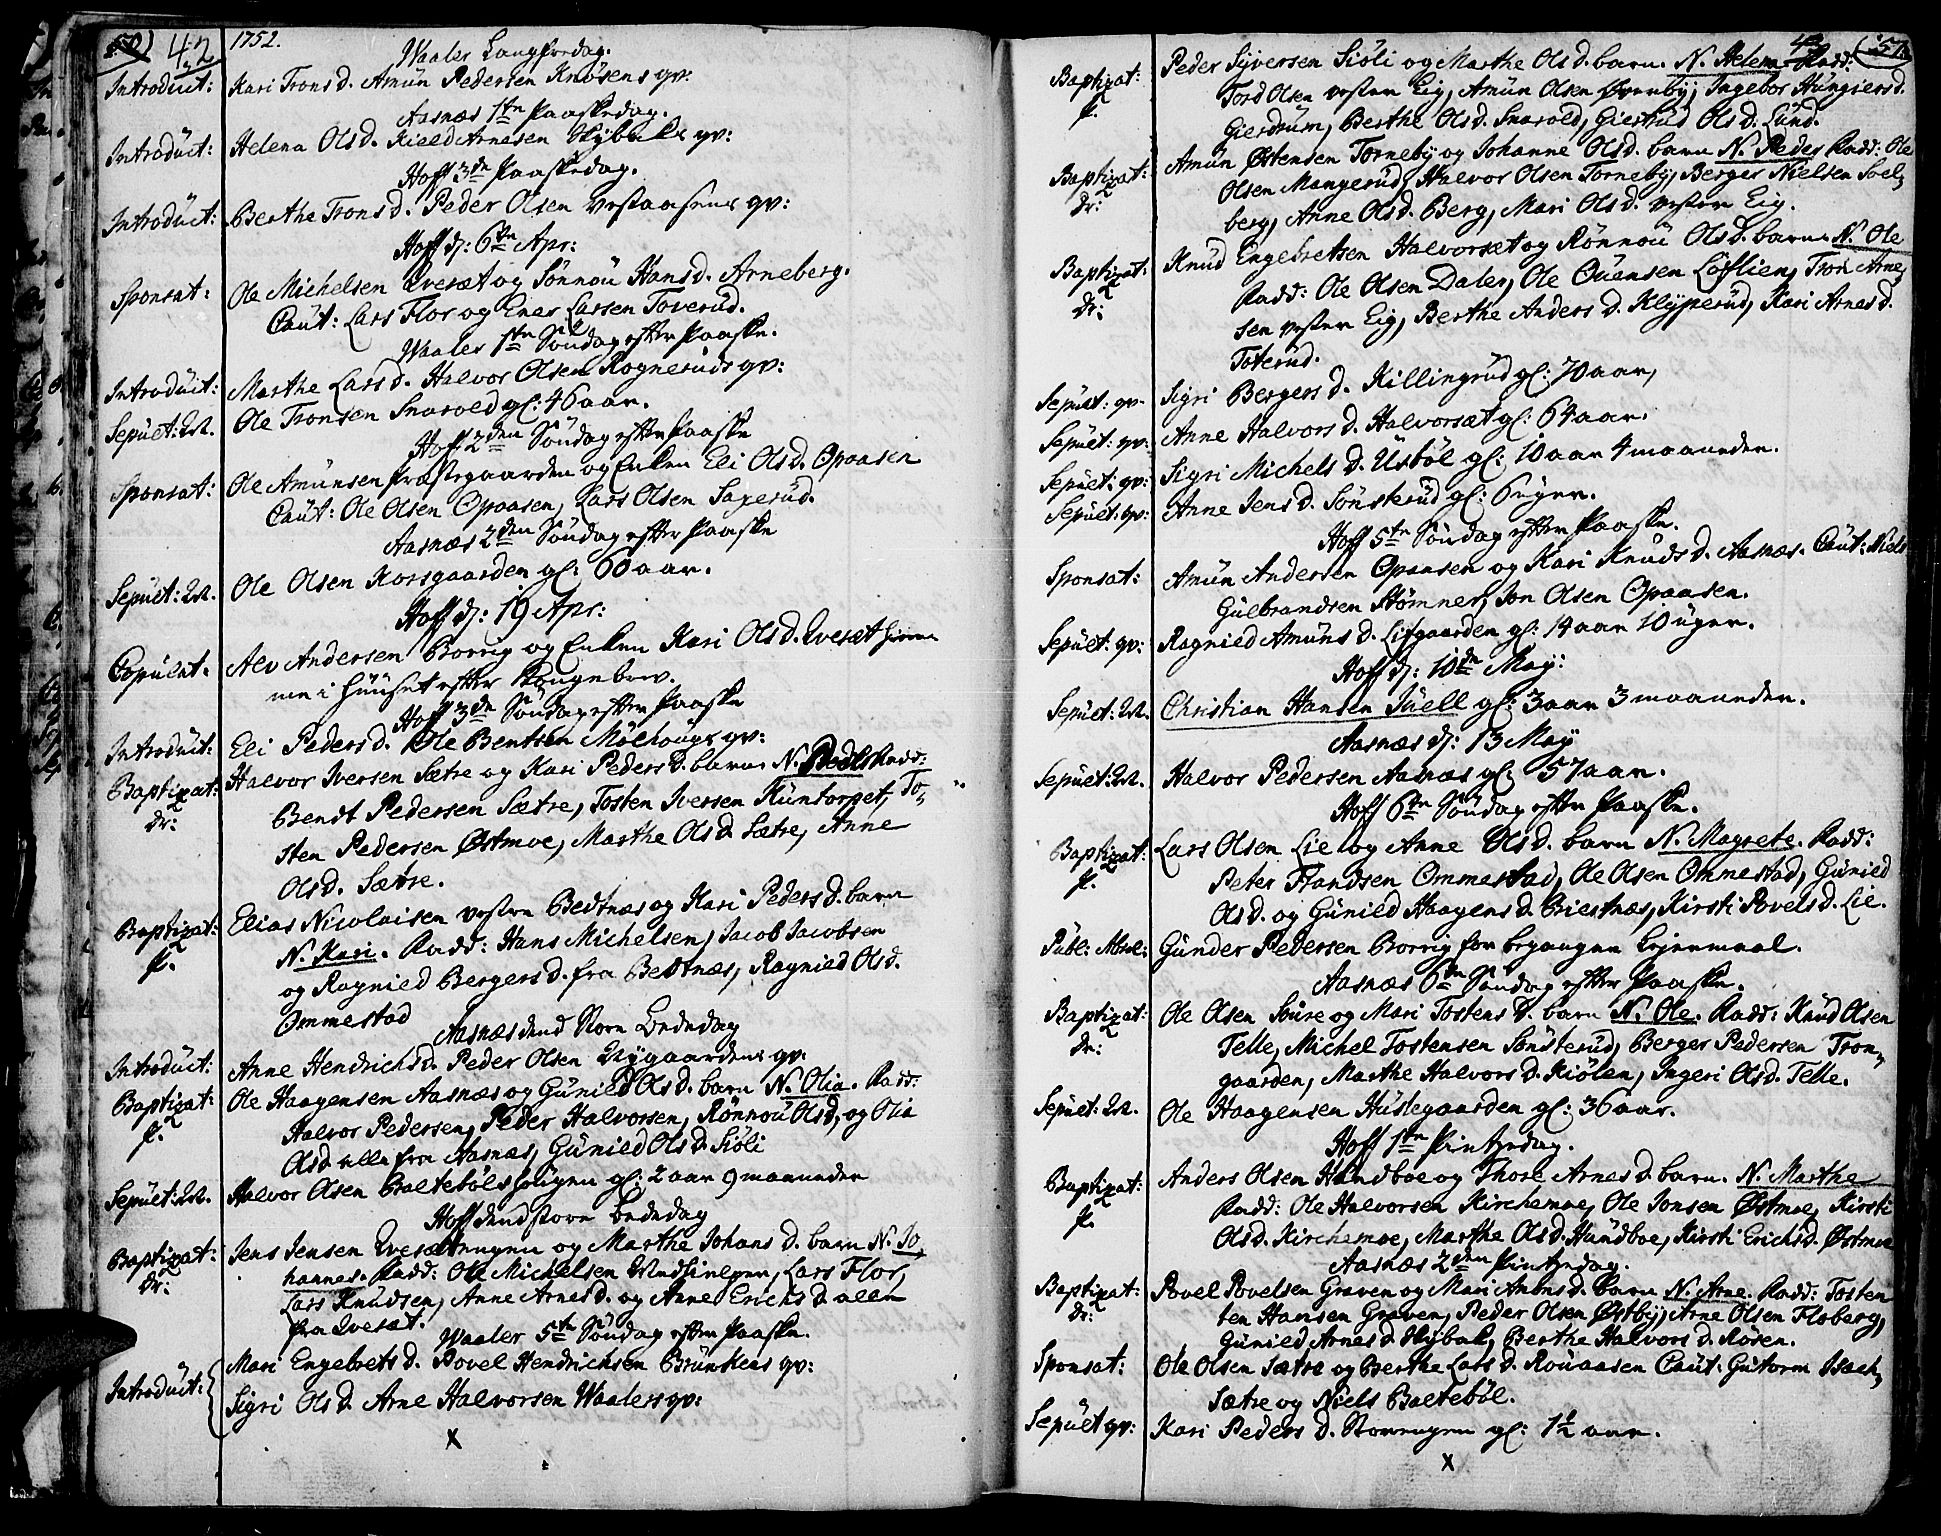 50) 42 1752.
Waaler Langfredag.
Introduct: Kari Trons d. Amun Pedersen Knosens qv:
Aasnæs 1ste Paaskedag.
Introduct: Helena Ols d. Kield Arnesen Skybaks qv:
Hoff 3de Paaskedag.
Introduct: Berthe Trons d. Peder Olsen Vestaasens qv:
Hoff d: 6te Apr:
Sponsat: Ole Michelsen Qvesæt og Sönnou Hans d. Arneberg.
Caut: Lars Flor og Ener Larsen Toverud.
Waaler 1ste Söndag efter Paaske.
Introduct: Marthe Lars d. Halvor Olsen Rogneruds qv:
Sepult: M. Ole Tronsen Snarold gl: 46 aar.
Hoff 2den Söndag efter Paaske
Sponsat: Ole Amunsen Præstegaarden og Enken Eli Ols d. Opaasen
Caut: Ole Olsen Opaasen, Lars Olsen Sagerud.
Aasnæs 2den Söndag efter Paaske
Sepult: M. Ole Olsen Korsgaarden gl: 60 aar.
Hoff d: 19 Apr:
Copulat. Alv Andersen Borrig og Enken Kari Ols d. Qvesæt hiemme
i Huuset efter Kongebrev.
Hoff 3de Söndag efter Paaske
Introduct: Eli Peders d. Ole Bentsen Mölhougs qv:
Baptizat: Halvor Iversen Sætre og Kari Peders d. barn N. Peder Fadd:
dr: Bendt Pedersen Sætre, Tosten Iversen Kuntorpet, To-
sten Pedersen Østmoe, Marthe Ols d. Sætre, Anne
Ols d. Sætre.
Baptizat: Elias Nicolaisen vestre Bedtnæs og Kari Peders d. barn
p. N. Kari. Fadd: Hans Michelsen, Jacob Jacobsen
og Ragnied Bergers d. fra Bedtnæs, Ragnied Ols d.
Ommestad
Aasnæs dend store Bededag
Introduct: Anne Hendrichs d. Peder Olsen Nygaardens qv:
Baptizat: Ole Haagensen Aasnæs og Gunied Ols d. barn N. Olia. Fadd:
p. Halvor Pedersen, Peder Halvorsen, Rönnou Ols d, og Olia
Ols d alle fra Aasnæs, Gunied Ols d. Siöli
Sepult: M. Halvor Olsen Baltebölshougen gl: 2 aar 9 maaneder
Hoff dend store Bededag
Baptizat: Jens Jensen Qvesætengen og Marthe Johans d. barn N. Jo
dr: hannes. Fadd: Ole Michelsen, Lars Flor,
Lars Knudsen, Anne Arnes d. og Anne Erichs d alle
fra Qvesæt.
Waaler 5te Söndag efter Paaske.
Introduct: Mari Engelbrets d. Povel Hendrichsen Brunkens qv:
Sigri Ols d. Arne Halvorsen Waalers qv:
X
43 (51
Baptizat: Peder Syversen Siöli og Marthe Ols d. barn. N. Helena Fadd:
p. Tord Olsen vestre Eig, Amun Olsen Øvreby, Ingebor Hungiers d.
Gierdrum, Berthe Ols d. Snarold, Giertrud Ols d. Lund.
Baptizat: Amun Østensen Torneby og Johanne Ols d. barn N. Peder Fadd: Ole
dr: Olsen Mangerud, Halvor Olsen Torneby, Berger Nielsen Soel-
berg, Anne Ols d. Berg, Mari Ols d. vestre Eig.
Baptizat: Knud Engebretsen Halvorsæt og Rönnou Ols d. barn. N. Ole
dr: Fadd: Ole Olsen Daler, Ole Ouensen Löflien, Tron Arne-
sen vestre Eig, Berthe Anders d. Klyperud, Kari Arnes d.
Toterud.
Sepult: qv. Sigri Bergers d. Killingrud gl: 70 aar,
Sepult: qv: Anne Halvors d. Halvorsæt gl: 64 aar.
Sepult: qv: Sigri Michels d. Usböl gl: 10 aar 4 maaneder.
Sepult: qv: Anne Jens d. Sönsterud gl: 6 uger.
Hoff 5te Söndag efter Paaske.
Sponsat: Amun Andersen Opaasen og Kari Knuds d. Aasnæs. Caut: Niels
Gulbrandsen Stömner, Jon Olsen Opaasen.
Sepult: qv: Ragnied Amuns d. Lifgaarden gl: 14 aar 10 uger.
Hoff d: 10de May:
Sepult: M. Christian Hansen Juell gl: 3 aar 3 maaneder.
Aasnæs d: 13 May
Sepult: M. Halvor Pedersen Aasnæs gl: 57 aar.
Hoff 6te Söndag efter Paaske.
Baptizat: Lars Olsen Lie og Anne Ols d. barn N. Magrete. Fadd:
p. Peter Frandsen Ommestad, Ole Olsen Ommestad, Gunied
Ols d. og Gunied Haagens d. Griestnæs, Kirsti Povels d. Lie.
Publ: Absol: Gunder Pedersen Borrig for begangen Lejermaal.
Aasnæs 6te Söndag efter Paaske.
Baptizat: Ole Olsen Soure og Mari Tostens d. barn N. Ole. Fadd: Knud Olsen
dr: Telle, Michel Tostensen Sönsterud, Berger Pedersen Tron-
gaarden, Marthe Halvors d. Kiölen, Ingeri Ols d. Telle.
Sepult: M. Ole Haagensen Huslegaarden gl: 36 aar.
Hoff 1ste Pintzedag.
Baptizat: Anders Olsen Hundboe og Thore Arnes d. barn. N. Marthe
p. Fadd: Ole Halvorsen Kirchemoe, Ole Jonsen Østmoe, Kirsti
Ols d. Kirchemoe, Marthe Ols d. Hundboe, Kirsti Erichs d. Østmoe
Aasnæs 2den Pintzedag.
Baptizat: Povel Povelsen Graven og Mari Amuns d. barn N. Arne. Fadd: Tosten
dr: ten Hansen Graven, Peder Olsen Østby, Arne Olsen Floberg,
Gunied Arnes d. Skybak, Berthe Halvors d. Rosen.
Sponsat: Ole Olsen Sætre og Berthe Lars d. Rouaasen Caut: Guttorm Isach-
Sætre og Niels Balteböl.
Sepult qv: Kari Peders d. Storengen gl: 1½ aar.
X